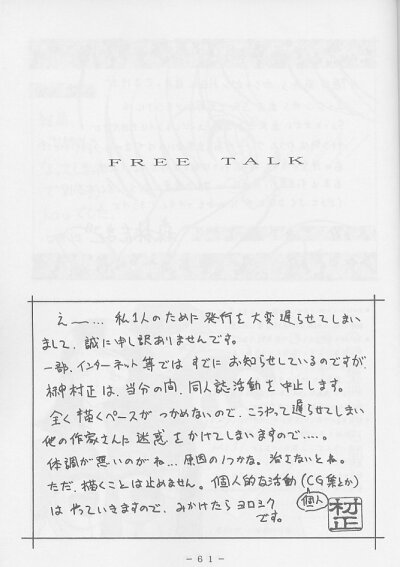 FREE TALK
えー…. 私1人のために発行を大変遅らせてしまい
まして、誠に申し訳ありませんです。
一部、インターネット等ではすでにお知らせしているのですが、
村正は、当分の間、同人誌活動を中止します。
全く描くペースがつかめないので、こうやって遅らせてしまい
他の作家さんに迷惑をかけてしまいますので….。
体調が悪いのがね… 原因の1つかな。治さないとね。
ただ、描くことは止めません。個人的な活動(CG集とか)
個人
はやっていきますので、みかけたらヨロシク
です。
村正
-61-